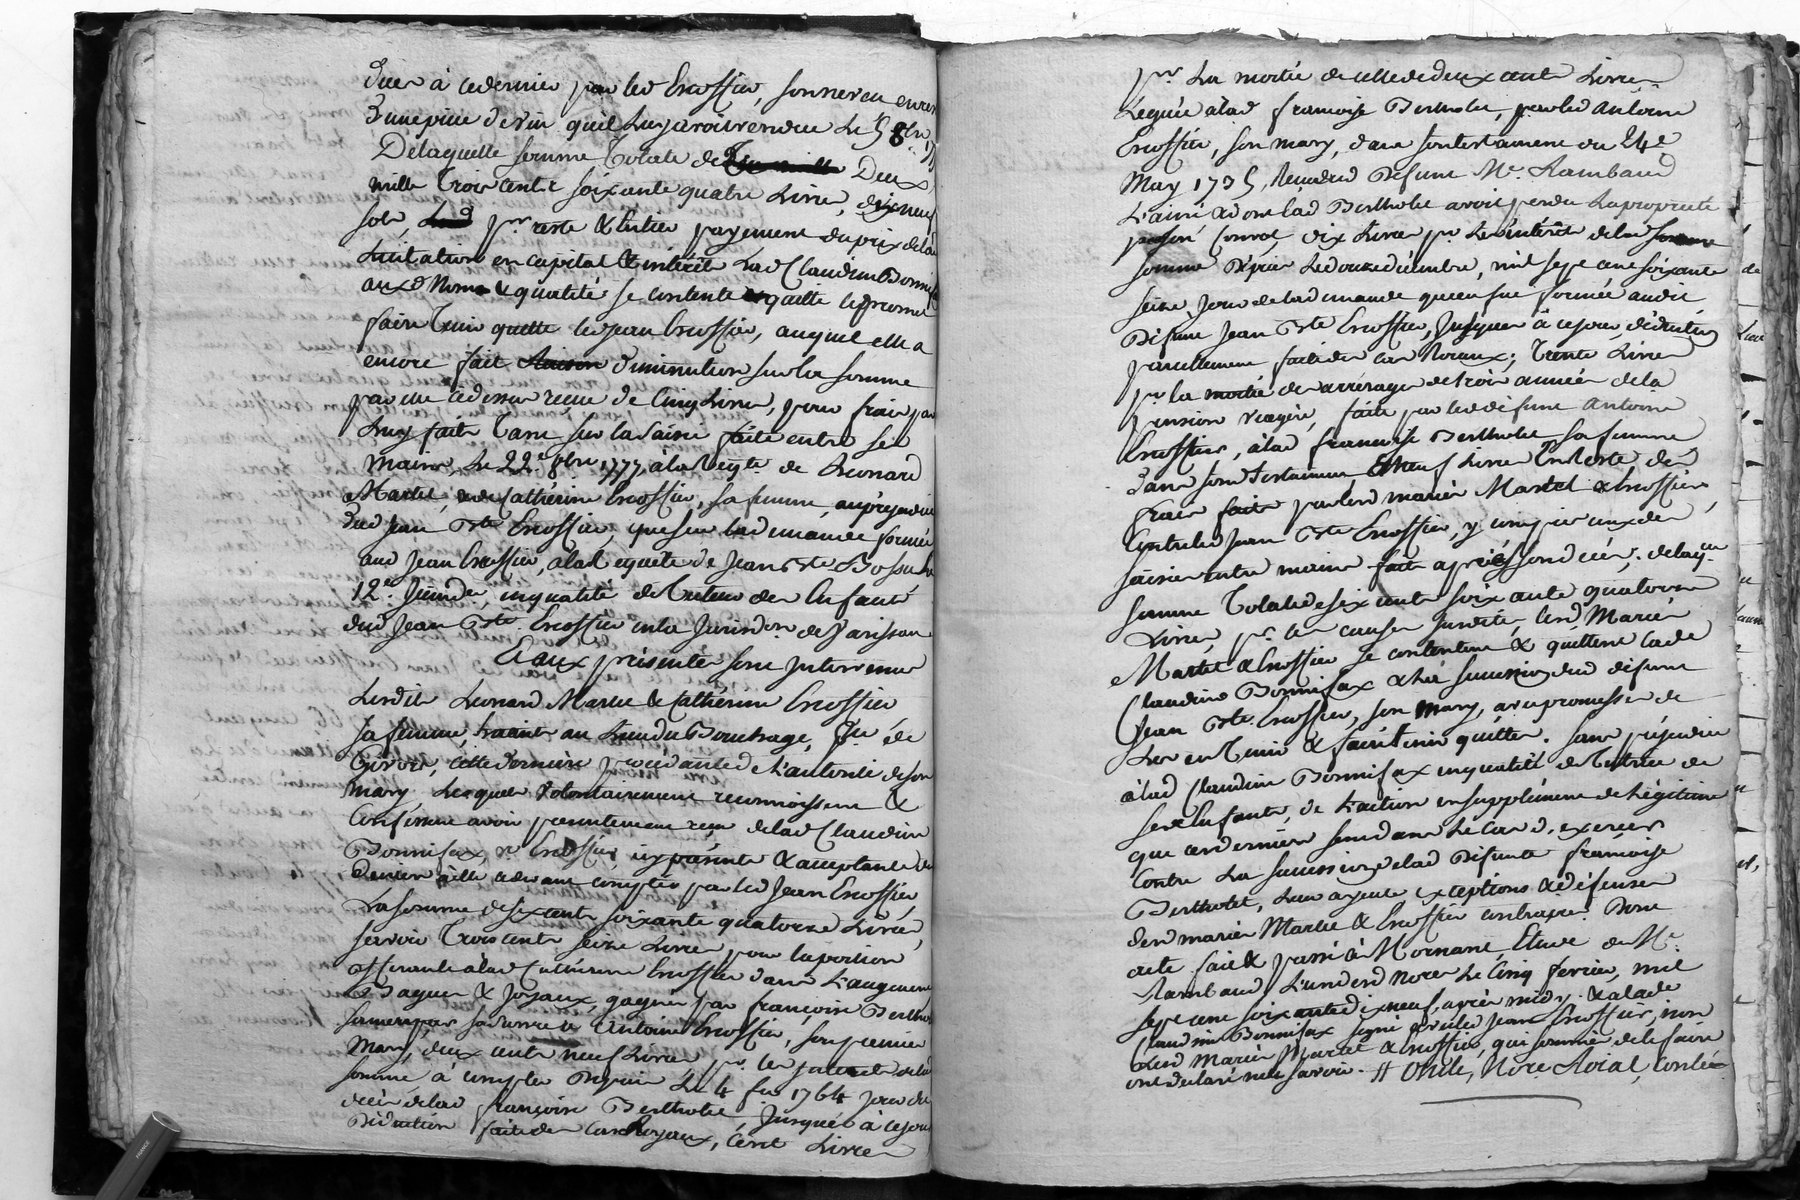 dües à ce dernier par led Encossier, son neveu en vers
d'une pièce de vin qu'il luy avoit vendue Le 5 8bre
De laquelle somme Totale de Deux
mille Trois cents soixante quatre Livres, dix neuf
sols, pr reste & entier payement du prix de lad
Licitation en capital & intérêt Lad Claudine Bonnifax
aux d Noms & qualités se contente quitte & promet
faire Tenir quitte led Jean Encossier, auquel elle a
encore fait diminution sur la somme
par elle cy dessus reçue de Cinq Livres, pour frais par
Luy faits Tant sur la saisie faite entre ses
mains, Le 22e 8bre 1777 à la Reqte de Leonard
Martel, & de Catherine Encossier, sa femme, au préjudice
dud Jean Bte Encossier, que sur la demande formée
aud Jean Encossier, à la Requête de Jean Bte Bossu le
12e Juin der, en qualité de Tuteur des Enfants
dud Jean Bte Encossier en la Jurisdon de
Et aux présentes sont Intervenus
Lesdits Leonard Martel & Catherine Encossier
sa femme, au Lieu du Bouchage, psse de
Givors, cette dernière procédante de L'autorité de son
mary Lesquels volontairement reconnoissent &
Confessent avoir présentement reçu de lad Claudine
Bonnifax, ve Encossier icy présente & acceptante des
deniers à elle cy devant comptés par led Jean Encossier
La somme de six cents soixante quatorze Livres,
sçavoir Trois cents seize Livres pour la portion
afférente à lad Catherine Encossier dans L'augment
Bagues & Joyaux, gagnés par françoise Berthollet
sa mere, par Antoine Encossier, son premier
Mary, deux cents neuf Livres pr les interets de lad
somme à compter Depuis Le 4 1764 jour du
décès de lad françoise Berthollet, Jusques à ce jour
Déduction faite des Cas Royaux, Cent Livres
pr La moitié de celle de deux cents Livres
Léguée à lad françoise Berthollet, par led Antoine
Encossier, son mary, dans son testament du 24e
May 1735, Reçu dud Defunt Me Rambaud
L'ainé & dont lad Berthollet avoit perdu La propriété
dix Livres pr Les intérêts de lad
somme Depuis Le douze décembre, mil sept cent soixante
seize, Jour de la demande qu'en fut formée audit
Defunt Jean Bte Encossier, Jusques à ce jour, déduction
pareillement faite des Cas Royaux; Trente Livres
pr la moitié des arrérages de trois années de la
pension viagère, faite par led défunt Antoine
Encossier, à lad françoise Berthollet sa femme
dans son Testament & Neuf Livres En Reste des
frais faits par lesd mariés Martel & Encossier
Contre led Jean Bte Encossier, y compris ceux des
saisies entre mains fait après son décés. de laqe
somme Totale de six cents soixante quatorze
Livres, pr les causes susdites, lesd Mariés
Martel & Encossier se contentent & quittent lad
Claudine Bonnifax & la succession dud défunt
Jean Bte Encossier, son mary, avec promesse de
Les en Tenir & faire Tenir quittes. Sans préjudice
à lad Claudine Bonnifax en qualité de Tutrice de
ses Enfants, de L'action en supplément de Légitime
que ces derniers sont dans Le Cas d'exercer
Contre La succession de lad Défunte françoise
Berthollet, & exceptions & défenses
desd mariés Martel & Encossier contraires. Dont
acte fait & passé à Mornant, Etude de Me
Rambaud L'un desd Nores Le Cinq fevrier, mil
sept cent soixante dix neuf, après midy. & a lade
Claudine Bonnifax signé avec led Jean Encossier, non
lesd Mariés Martel & Encossier, qui sommés de le faire
ont déclaré ne le sçavoir. Nore Roial,